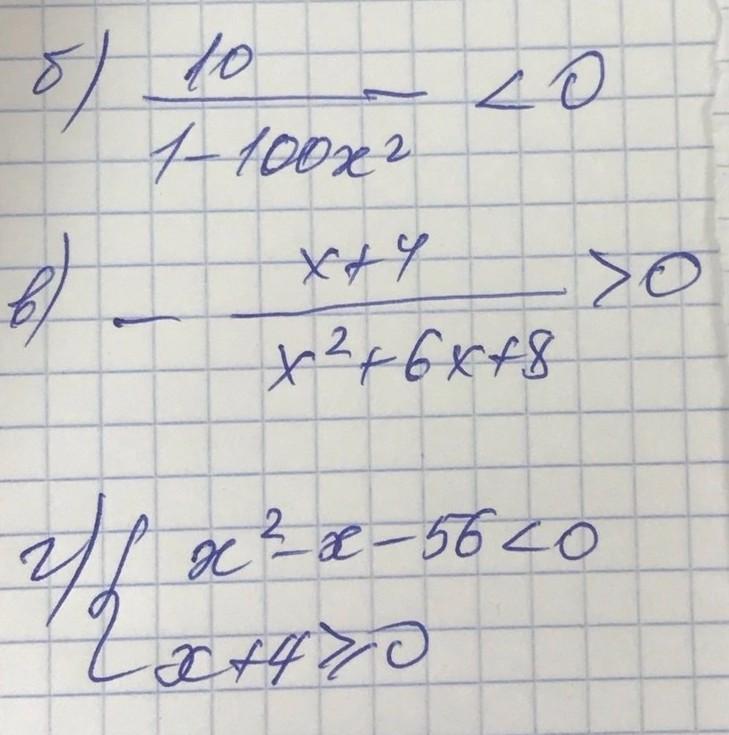 б) 10 / 1-100x² < 0
в) - x+4 / x²+6x+8 > 0
г) { x²-x-56<0
x+4⩾0